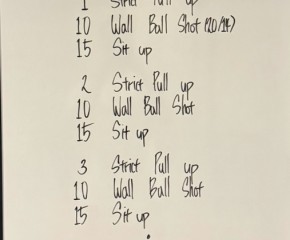 1 Strict Pull up
10 Wall Ball Shot (20/14)
15 Sit up
2 Strict Pull up
10 Wall Ball Shot
15 Sit up
3 Strict Pull up
10 Wall Ball Shot
15 Sit up